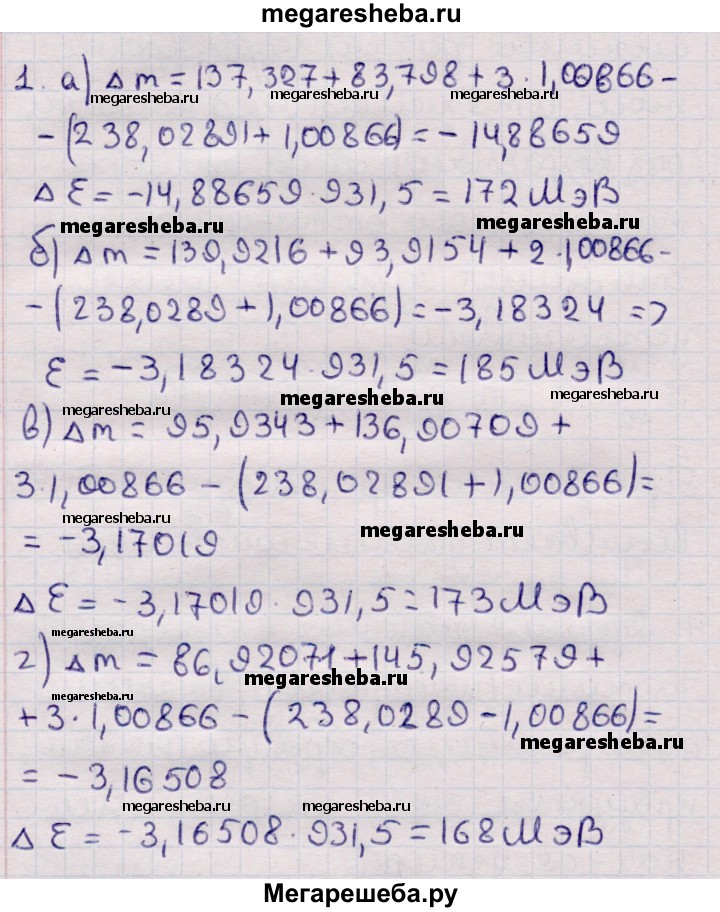 megaresheba.ru
1. а) Δm = 137,327 + 83,798 + 3 · 1,00866 -
megaresheba.ru megaresheba.ru megaresheba.ru
- (238,02891 + 1,00866) = - 14,88659
ΔE = -14,88659 · 931,5 = 172 МэВ
megaresheba.ru megaresheba.ru
б) Δm = 139,9216 + 93,9154 + 2 · 1,00866 -
- (238,0289 + 1,00866) = -3,18324 =>
E = -3,18324 · 931,5 = 185 МэВ
megaresheba.ru megaresheba.ru megaresheba.ru
в) Δm = 95,9343 + 136,90709 +
3 · 1,00866 - (238,02891 + 1,00866) =
megaresheba.ru megaresheba.ru
= -3,17019
ΔE = -3,17019 · 931,5 = 173 МэВ
megaresheba.ru
г) Δm = 86,92071 + 145,92579 +
megaresheba.ru megaresheba.ru
+ 3 · 1,00866 - (238,0289 - 1,00866) =
megaresheba.ru
= -3,16508
megaresheba.ru megaresheba.ru
ΔE = -3,16508 · 931,5 = 168 МэВ
Мегарешеба.ру